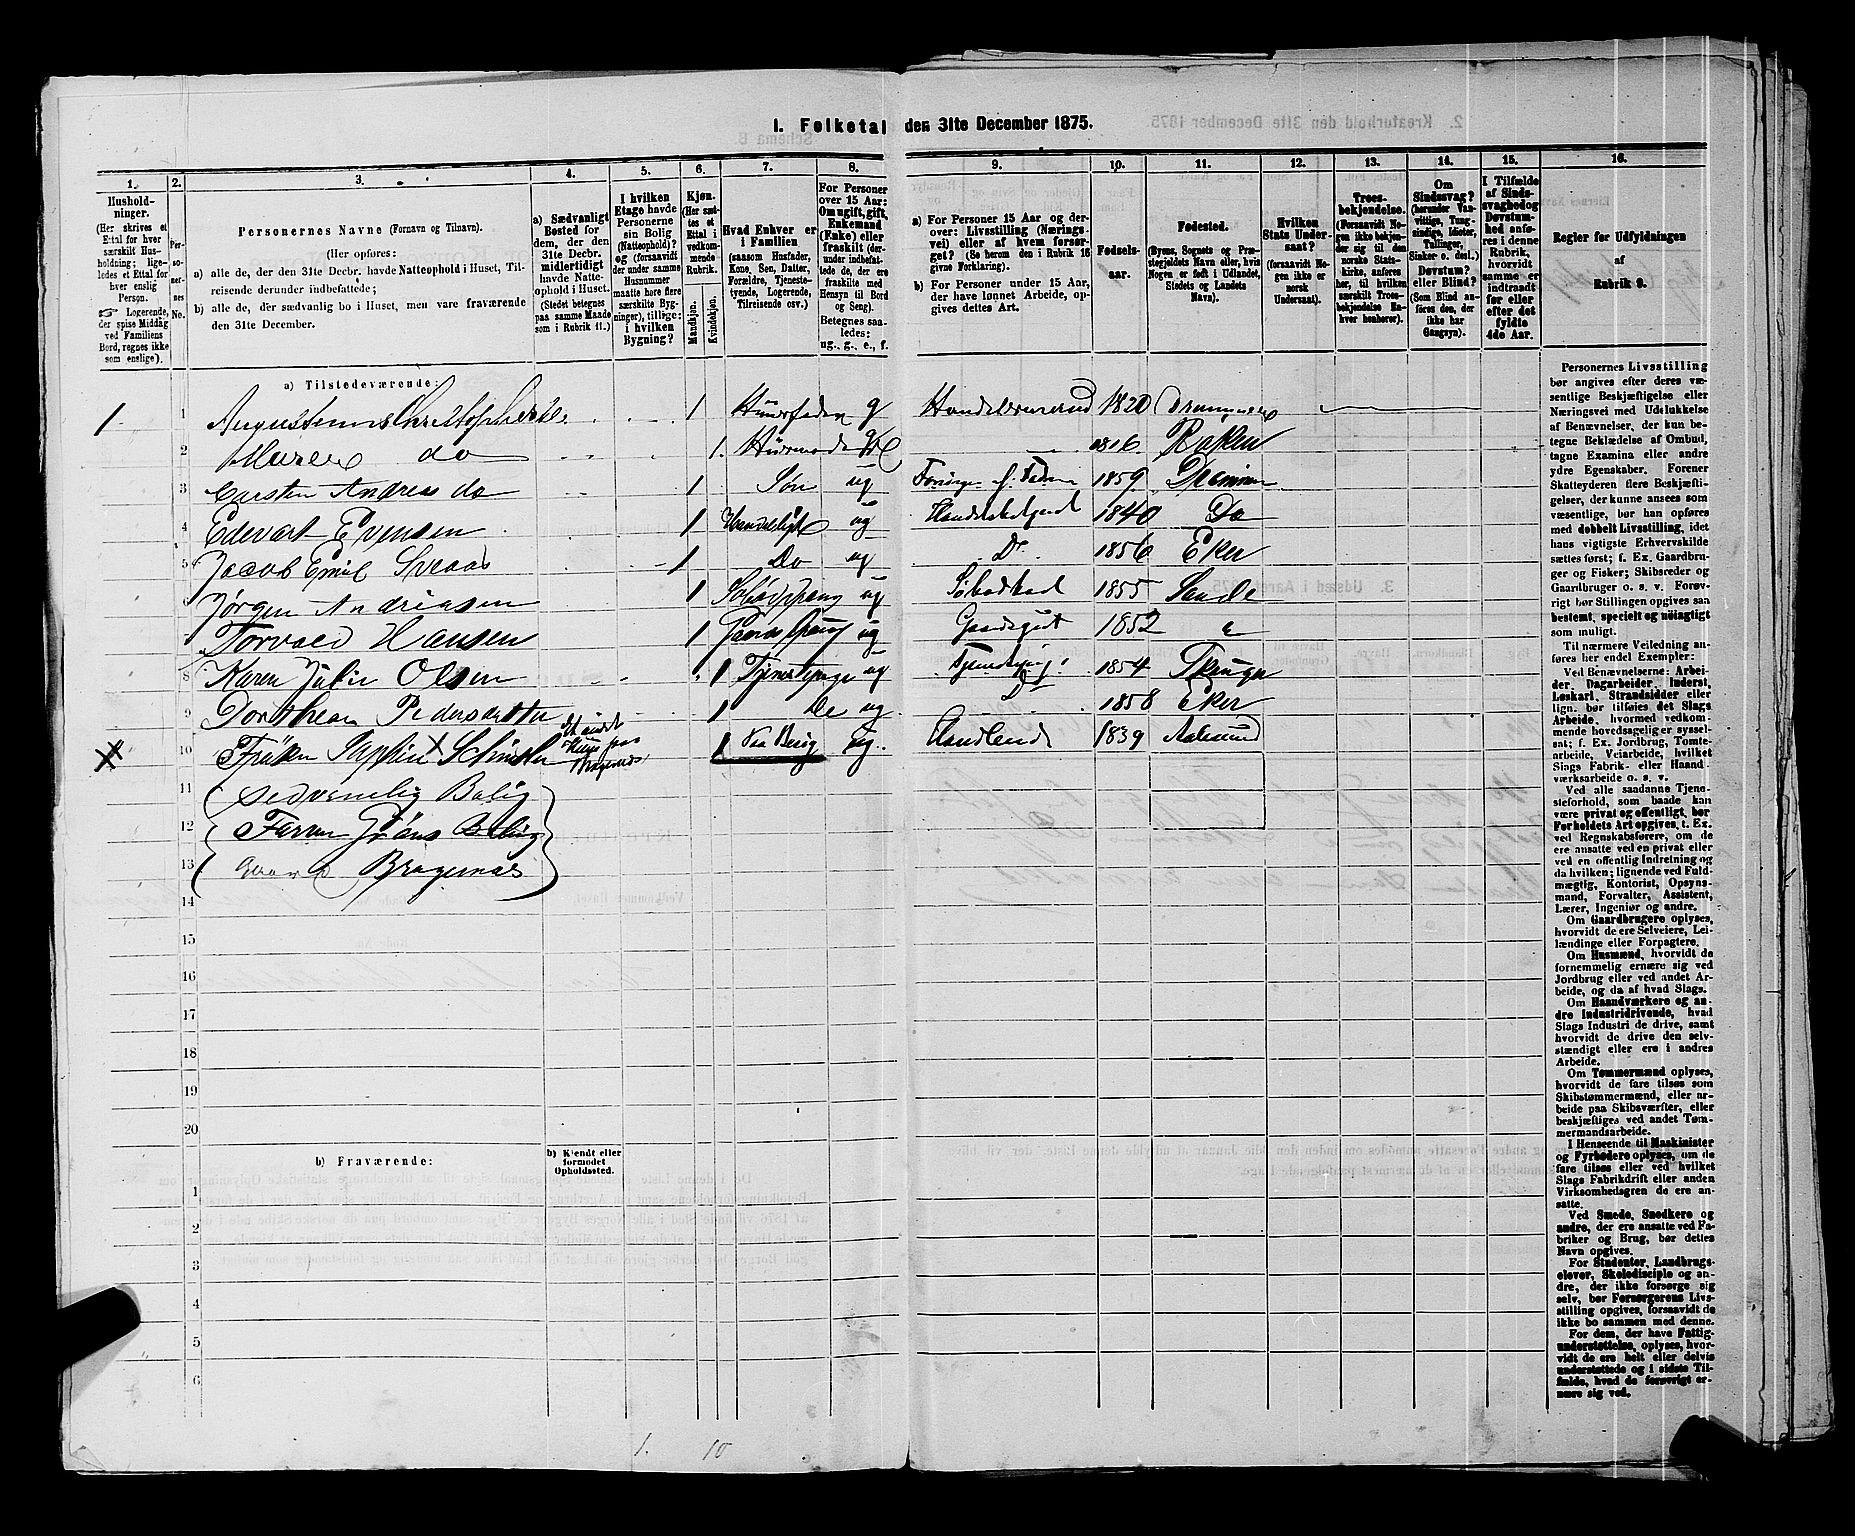 1. Folketal den 31te December 1875.
1.
2.
3.
4.
5.
6.
7.
8.
9.
10.
11.
12.
13.
14.
15.
16.
Hushold-
ninger.
(Her skrives et
Ettal for hver
særskilt Hus-
holdning; lige-
ledes et Ettal for
hver enslig
Person.
☞ Logerende,
der spise Middag
ved Familiens
Bord, regnes ikke
som enslige).
Per-
so-
ner-
nes
No.
Personernes Navne (Fornavn og Tilnavn).
(Her opføres:
a) alle de, der den 31te Decbr. havde Natteophold i Huset, Til-
reisende derunder indbefattede;
b) alle de, der sædvanlig bo i Huset, men vare fraværende
den 31te December.
a) Sædvanligt
Bosted for
dem, der den
31te Decbr.
midlertidigt
havde Natte-
ophold i Huset.
(Stedet betegnes
paa samme Maade
som i Rubrik 11.)
I hvilken
Etage havde
Personerne
sin Bolig
(Natteophold)?
(og forsaavidt
der under samme
Husnummer
maatte høre flere
særskilte Byg-
ninger), tillige:
i hvilken
Bygning?
Kjøn.
(Her sæt-
tes et
Ettal i
vedkom-
mende
Rubrik.
Mandkjøn.
Kvindekjøn.
Hvad Enhver er
i Familien
(saasom Husfader,
Kone, Søn, Datter,
Forældre, Tjeneste-
tyende, Logerende,
Tilreisende osv.)
For Personer
over 15 Aar:
Om ugift, gift,
Enkemand
(Enke) eller
fraskilt (der-
under indbefat-
tede de, der ere
fraskilte med
Hensyn til Bord
og Seng).
Betegnes saa-
ledes:
ug., g., e., f.
a) For Personer 15 Aar og der-
over: Livsstilling (Nærings-
vei) eller af hvem forsør-
get? (Se herom den i Rubrik 16
givne Forklaring).
b) For Personer under 15 Aar,
der have lønnet Arbeide, op-
gives dettes Art.
Fødsels-
aar.
Fødested.
(Byens, Sognets og Præ-
stegjeldets Navn eller, hvis
Nogen er født i Udlandet,
Stedets og Landets
Navn).
Hvilken
Stats Under-
saat?
(forsaavidt No-
gen ikke er
norsk
Undersaat).
Troes-
bekjendelse.
(Forsaavidt No-
gen ikke bekjen-
der sig til den
norske Stats-
kirke, anføres
her, til hvilken
særskilt Troes-
bekjendelse En-
hver henhører).
Om
Sindssvag?
(herunder Van-
vittige, Tung-
sindige, Idioter,
Tullinger,
Sinker o. desl.)
Døvstum?
eller Blind?
(Som Blind an-
føres den, der
ikke har
Gangsyn).
I Tilfælde
af Sinds-
svaghed og
Døvstum-
hed anfø-
res i denne
Rubrik,
hvorvidt
samme er
indtraadt
før eller
efter det
fyldte
4de Aar.
Regler for Udfyldningen
af
Rubrik 9.
a) Tilstedeværende:
1 1 Augustinus Christophersen 1 Huusfader g Handelsmand 1820 Drammen
2 Maren do 1 Huusmoder g 1816 Røken
3 Carsten Andreas do 1 Søn ug Forsørges f. Fader 1859 Drammen
4 Edevart Evensen 1 ug Handelsbetjent 1840 Do
5 Jacob Emil Svraas 1 Do ug Do 1856 Eker
Jørgen Andriasen 1 ug 1855 Sande
Torvald Hansen 1 ug Gaardsgut 1852
8 Karen Julie Olsen 1 Tjenestepige ug Tjenestepige 1854 Skouger
9 Dorthea Pedersdatter 1 Do ug Do 1858 Eker
10 Frøken 1 Paa Besøg ug. Handlende 1839 Aalesund
11 Sedvanelig Bolig
12 Farver Grøns Bolig
13 Bragernæs
14
15
16
17
18
19
20
b) Fraværende:
b) Kjendt eller
formodet
Opholdssted.
1
2
3
4
5
6
1. 10
Personernes Livsstilling
bør angives efter deres væ-
sentlige Beskjæftigelse eller
Næringsvei med Udelukkelse
af Benævnelser, der kun be-
tegne Beklædelse af Ombud,
tagne Examina eller andre
ydre Egenskaber. Forener
Skatteyderen flere Beskjæfti-
gelser, der kunne ansees som
væsentlige, bør han opføres
med dobbelt Livsstilling, idet
hans vigtigste Erhvervskilde
sættes først; f. Ex. Gaardbru-
ger og Fisker; Skibsreder og
Gaardbruger o. s. v. Forøv-
rigt bør Stillingen opgives saa
bestemt, specielt og nøiagtigt
som muligt.
Til nærmere Veiledning an-
føres her endel Exempler:
Ved Benævnelserne: Arbei-
der, Dagarbeider, Inderst,
Løskarl, Strandsidder eller
lign. bør tilføies det Slags
Arbeide, hvormed vedkom-
mende hovedsagelig er syssel-
sat; f. Ex. Jordbrug, Tomte-
arbeide, Veiarbeide, hvilket
Slags Fabrik- eller Haand-
værksarbeide o. s. v.
Ved alle saadanne Tjene-
steforhold, som baade kan
være privat og offentligt, bør
Forholdets Art opgives, t. Ex.
ved Regnskabsførere, om de
ere ansatte ved en privat eller
ved en offentlig Indretning og
da hvilken; lignende ved Fuld-
mægtig, Kontorist, Opsyns-
mand, Forvalter, Assistent,
Lærer, Ingeniør og andre.
Om Gaardbrugere oplyses,
hvorvidt de ere Selveiere, Lei-
lændinge eller Forpagtere.
Om Husmænd, hvorvidt de
fornemmelig ernære sig ved
Jordbrug eller ved andet Ar-
beide, og da af hvad Slags.
Om Haandværkere og an-
dre Industridrivende, hvad
Slags Industri de drive, samt
hvorvidt de drive den selv-
stændigt eller ere i andres
Arbeide.
Om Tømmermænd oplyses,
hvorvidt de fare tilsøs som
Skibstømmermænd, eller ar-
beide paa Skibsværfter, eller
beskjæftiges ved andet Tøm-
mermandsarbeide.
I Henseende til Maskinister
og Fyrbødere oplyses, om de
fare tilsøs eller ved hvilket
Slags Fabrikdrift eller anden
Virksomhedsgren de ere an-
satte.
Ved Smede, Snedkere og
andre, der ere ansatte ved Fa-
briker og Brug, bør dettes
Navn opgives.
For Studenter, Landbrugs-
elever, Skoledisciple og an-
dre, der ikke forsørge sig
selv, bør Forsørgerens Livs-
stilling opgives, forsaavidt de
ikke bo sammen med denne.
For dem, der have Fattig-
understøttelse, oplyses, hvor-
vidt de ere helt eller delvis
understøttede og i sidste Til-
fælde, hvad de forøvrigt er-
nære sig ved.